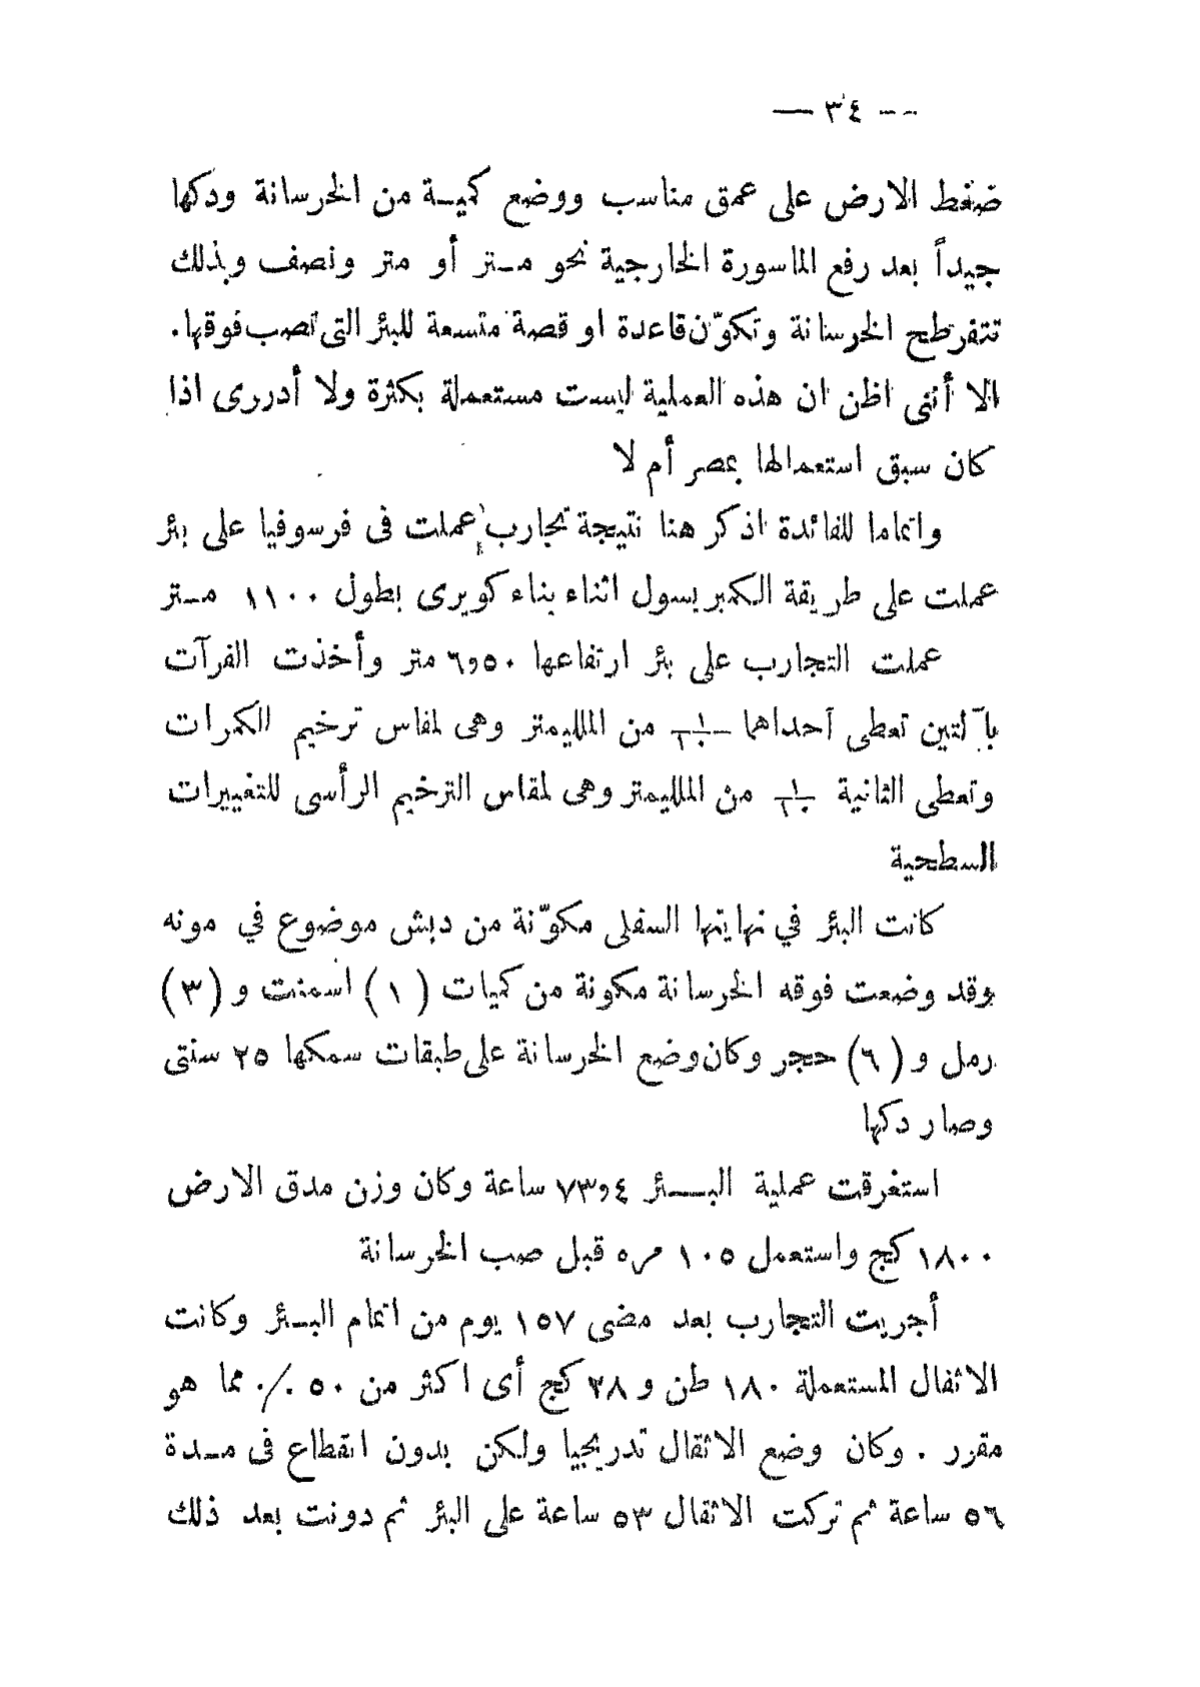 — ٣٤ —
ضغط الارض على عمق مناسب ووضع كميـة من الخرسانة ودكها
جيداً بعد رفع الماسورة الخارجية نحو مـتر أو متر ونصف وبذلك
تتفرطح الخرسانة وتكوّن قاعدة او قصة متسعة للبئر التى تصب فوقها.
الا أننى اظن ان هذه العملية ليست مستعملة بكثرة ولا أدررى اذا
كان سبق استعمالها بمصر أم لا
واتماما للفائدة اذكر هنا نتيجة تجارب عملت فى فرسوفيا على بئر
عملت على طريقة الكمبريسول اثناء بناء كوبرى بطول ١١٠٠ مـتر
عملت التجارب على بئر ارتفاعها ٦٫٥٠ متر وأخذت القرآت
بآلتين تعطى آحداهما من المليمتر وهى لمقاس ترخيم الكمرات
وتعطى الثانية من المليمتر وهى لمقاس الترخيم الرأسى للتغييرات
السطحية
كانت البئر في نهايتها السفلى مكوّنة من دبش موضوع في مونه
وقد وضعت فوقه الخرسانة مكونة من كميات (١) اسمنت و (٣)
رمل و (٦) حجر وكان وضع الخرسانة على طبقات سمكها ٢٥ سنتى
وصار دكها
استغرقت عملية البـــئر ٧٣٫٤ ساعة وكان وزن مدق الارض
١٨٠٠ كج واستعمل ١٠٥ مره قبل صب الخرسانة
أجريت التجارب بعد مضى ١٥٧ يوم من اتمام البـئر وكانت
الاثقال المستعملة ١٨٠ طن و ٢٨ كج أى اكثر من ٥٠ ٪ مما هو
مقرر . وكان وضع الاثقال تدريجيا ولكن بدون انقطاع فى مـدة
٥٦ ساعة ثم تركت الاثقال ٥٣ ساعة على البئر ثم دونت بعد ذلك